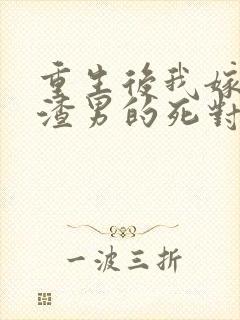 重生後我嫁
渣男的死對
一波三折